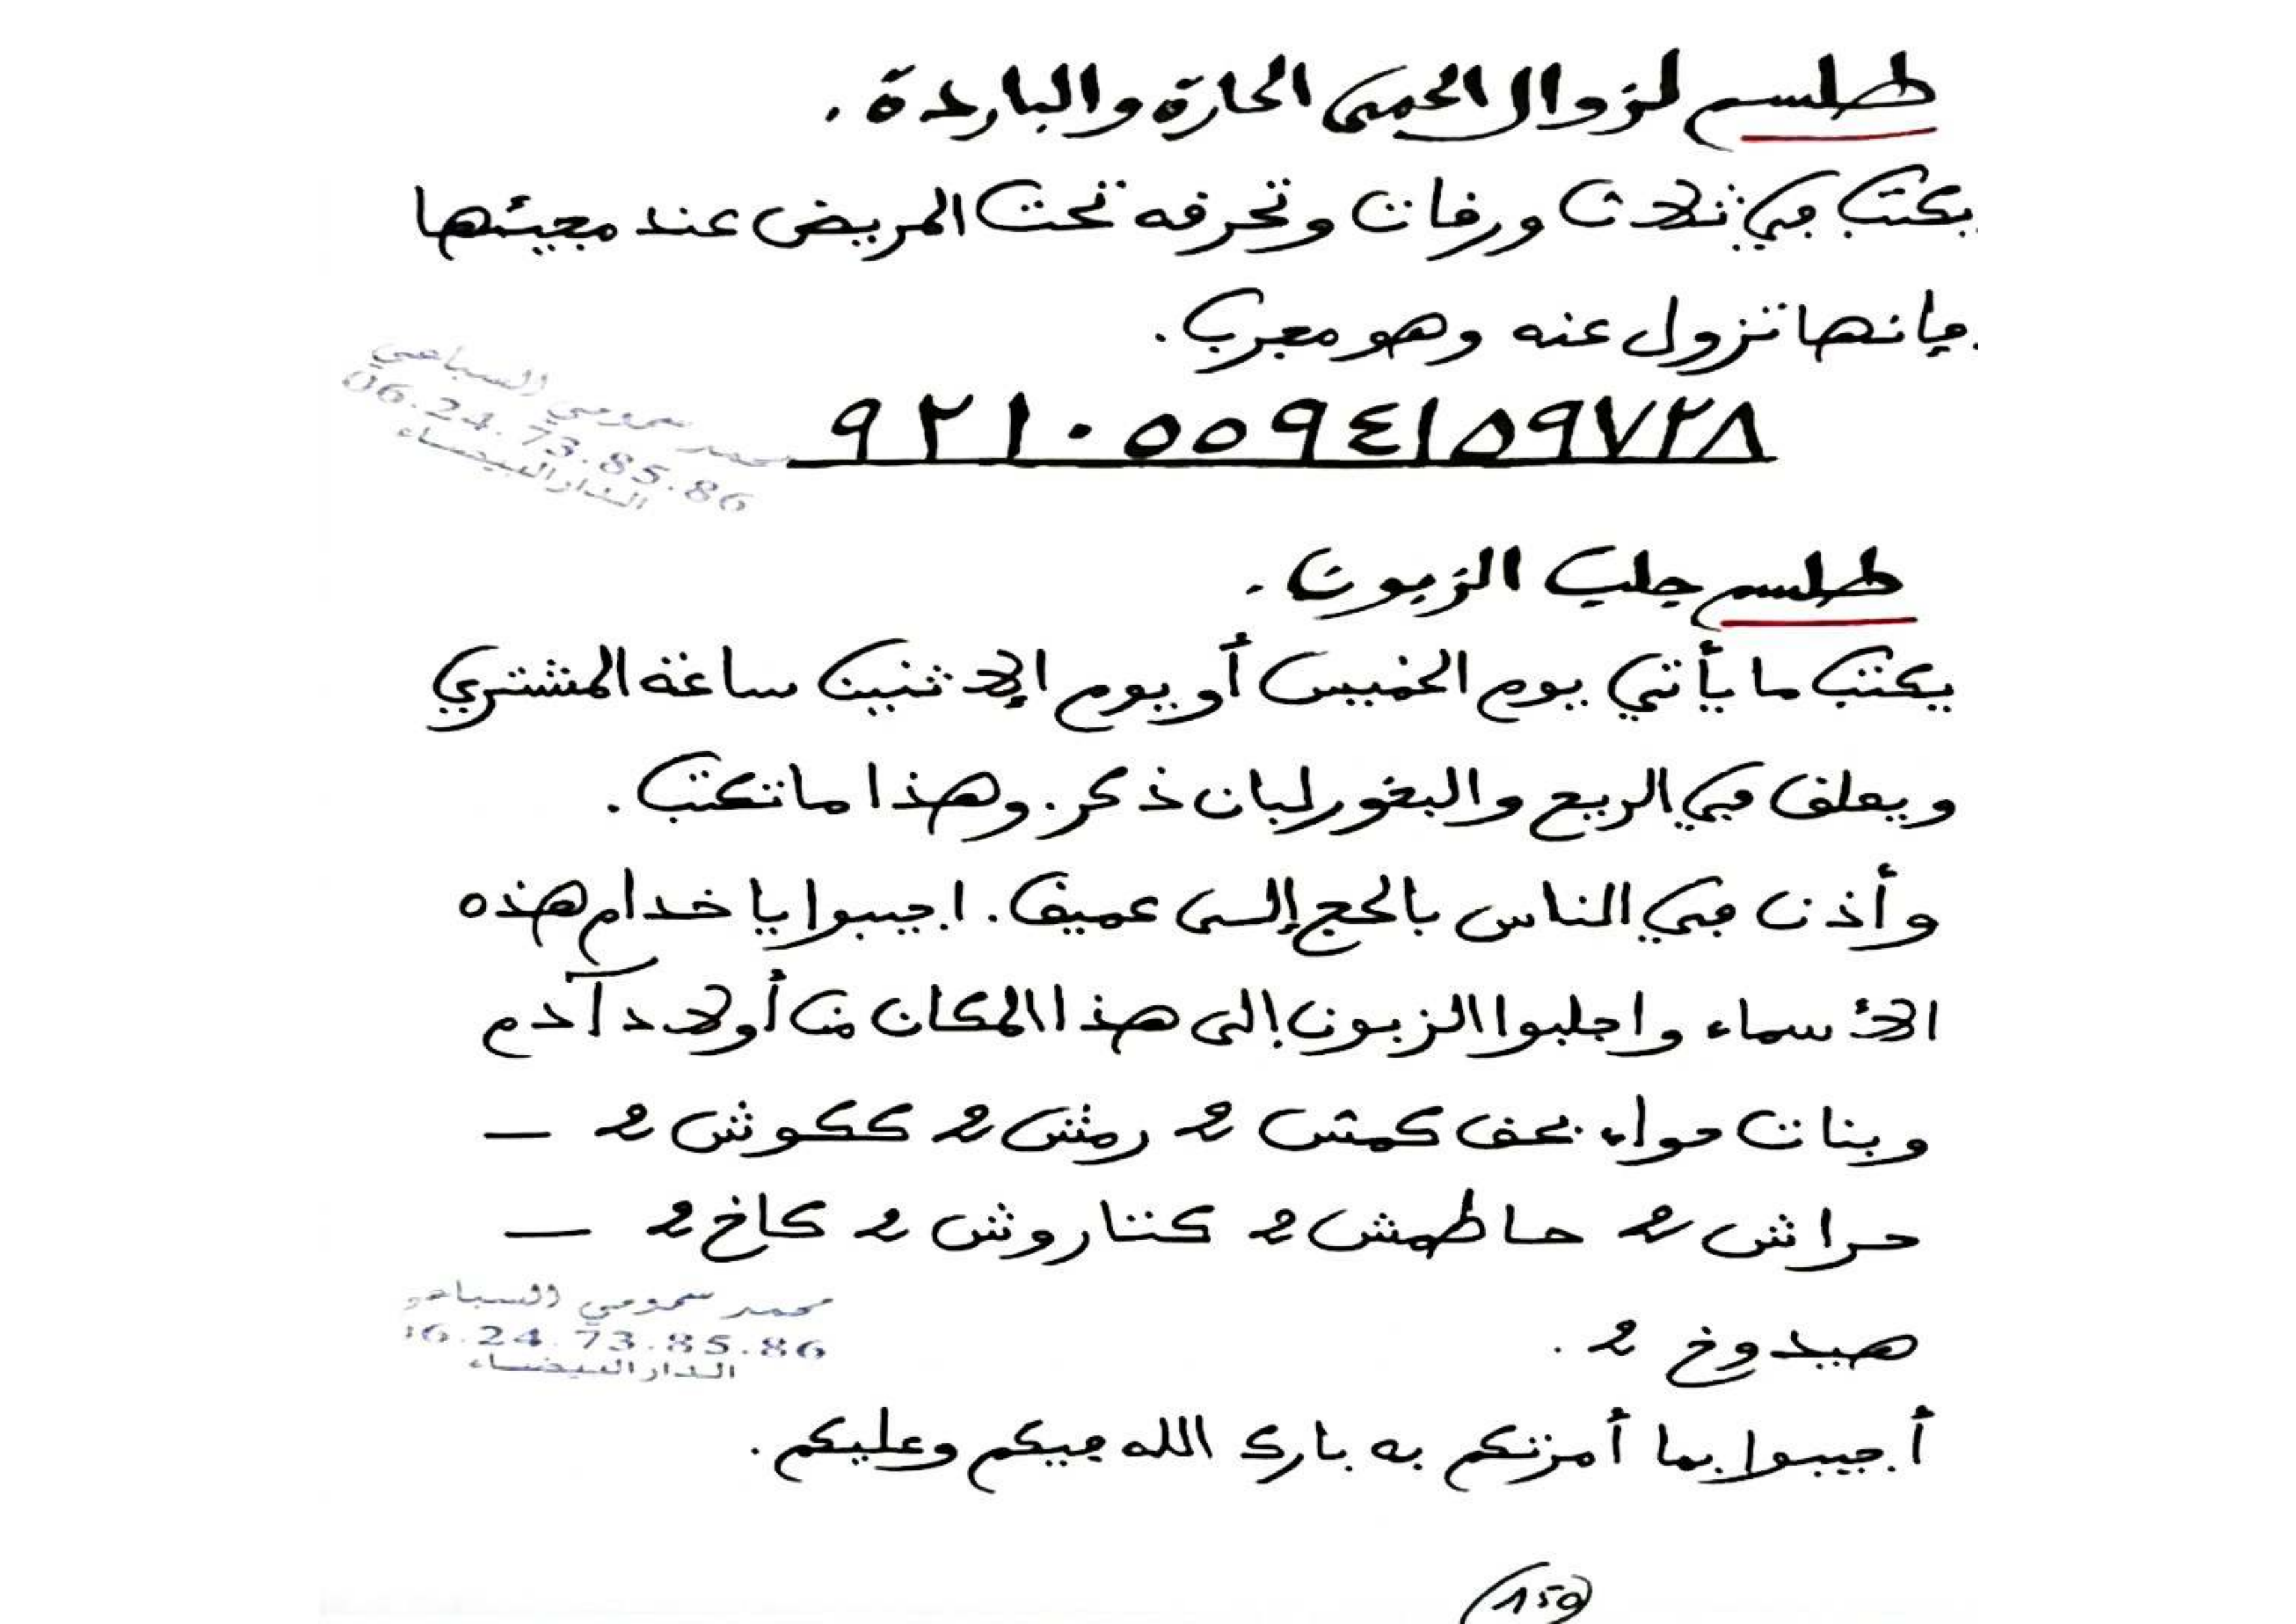 طلسم لزوال الحمى الحارة والباردة .
يكتب في ثلاث ورقات وتحرقه تحت المريض عند مجيئها
فإنها تزول عنه وهو مجرب .
٩٢١٠٥٥٩٤١٥٩٧٢٨
محمد سمومي السباعي
06.24.73.85.86
الدار البيضاء
طلسم جلب الزبون .
يكتب ما يأتي يوم الخميس أو يوم الإثنين ساعة المشتري
ويعلق في الريح والبخور لبان ذكر . وهذا ما تكتب .
وأذن في الناس بالحج إلى عميق . اجيبوا يا خدام هذه
الأسماء واجلبوا الزبون إلى هذا المكان من أولاد آدم
وبنات حواء بحق كمش 2 رمش 2 ككوش 2 —
حراش 2 حاطمش 2 كنتاروش 2 كاخ 2 —
هيدوخ 2 .
محمد سمومي السباعي
06.24.73.85.86
الدار البيضاء
أجيبوا بما أمرتكم به بارك الله فيكم وعليكم .